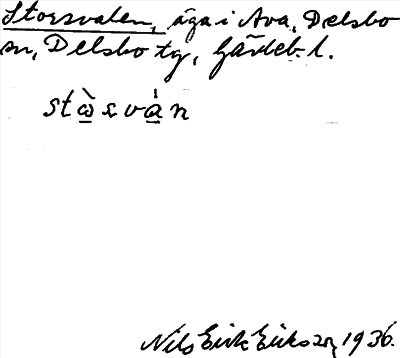 Storsvalen, äga i Ava, Delsbo
sn, Delsbo tg, Gävleb. l.
Nils Erik Eriksson 1936.